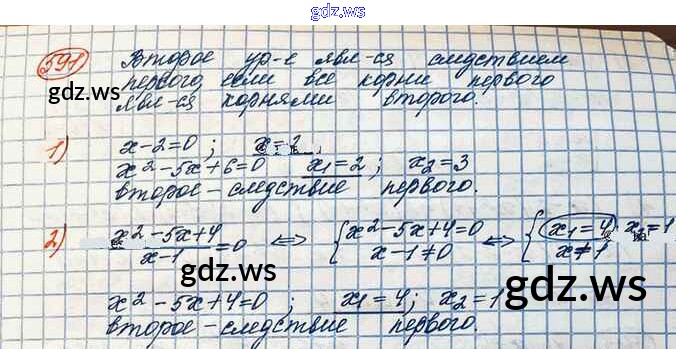 gdz.ws
591 Второе ур-е явл-ся следствием
первого, если все корни первого
явл-ся корнями второго.
gdz.ws
gdz.ws
1) x-2=0; x=2
x²-5x+6=0 x₁=2; x₂=3
второе-следствие первого.
2) x²-5x+4/x-1=0 ⇔ {x²-5x+4=0 x-1≠0 ⇔ {x₁=4; x₂=1 x≠1
gdz.ws
gdz.ws
x²-5x+4=0; x₁=4; x₂=1
второе-следствие первого.
gdz.ws